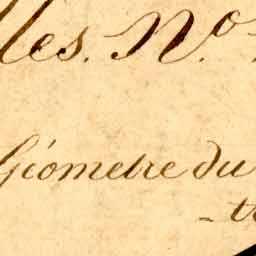 les. N.o
Géometre du
- te